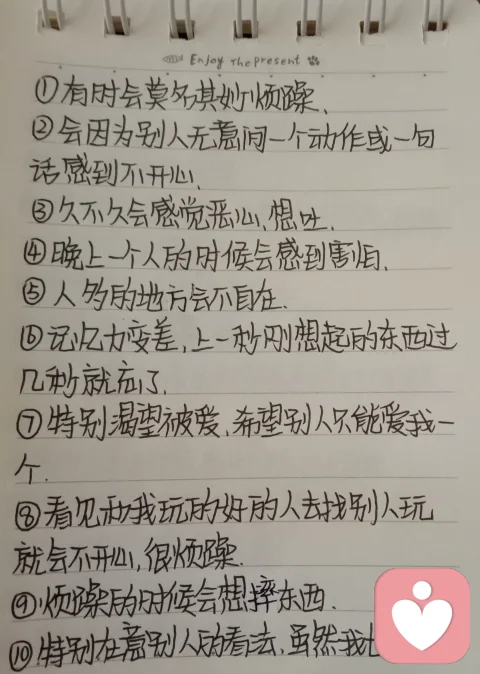 Enjoy The present
①有时会莫名其妙烦躁.
②会因为别人无意间一个动作或一句
话感到不开心.
③久不久会感觉恶心,想吐.
④晚上一个人的时候会感到害怕.
⑤人多的地方会不自在.
⑥记忆力变差,上一秒刚想起的东西过
几秒就忘了.
⑦特别渴望被爱,希望别人只能爱我一
个.
⑧看见和我玩的好的人去找别人玩
就会不开心,很烦躁.
⑨烦躁的时候会想摔东西.
⑩特别在意别人的看法,虽然我